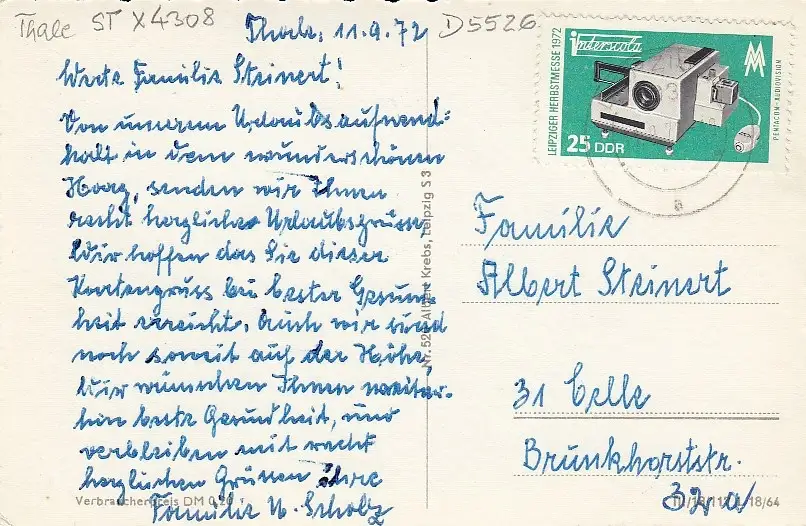 Thale ST X4308
D5526
Thale, 11.9.72
Werte Familie Steinert!
Von unserem Urlaubsaufend=
halt in dem wunderschönen
Harz, senden wir Ihnen
recht herzliche Urlaubsgrüsse,
Wir hoffen das Sie dieser
Kartengruss bei bester Gesund
heit erreicht. Auch wir sind
noch soweit auf der Höhe,
Wir wünschen Ihnen weiter-
hin beste Gesundheit, und
verbleiben mit recht
herzlichen Grüssen ihre
Familie Scholz
Verbraucherpreis DM 0,20
Albert Krebs, Leipzig S 3
LEIPZIGER HERBSTMESSE 1972
interscola
MM
PENTACON-AUDIOVISION
25 DDR
a
Familie
Albert Steinert
31 Celle
Brunkhorststr.